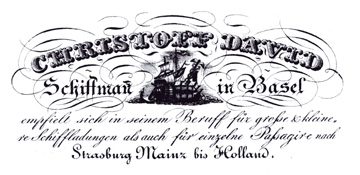 CHRISTOFF DAVID
Schiffman in Basel
empfielt sich in seinem Beruff für große & kleine,
re Schiffladungen als auch für einzelne Passagire nach
Strasburg Mainz bis Holland.